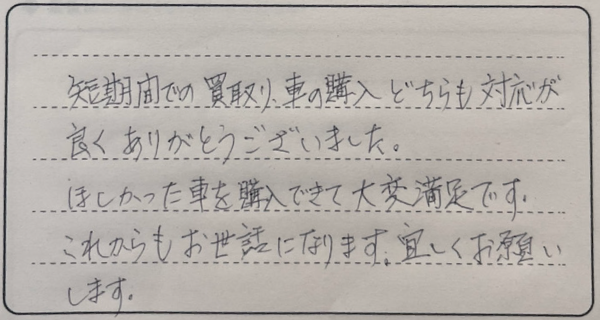 短期間での買取り、車の購入どちらも対応が
良くありがとうございました。
ほしかった車を購入できて大変満足です。
これからもお世話になります。宜しくお願い
します。